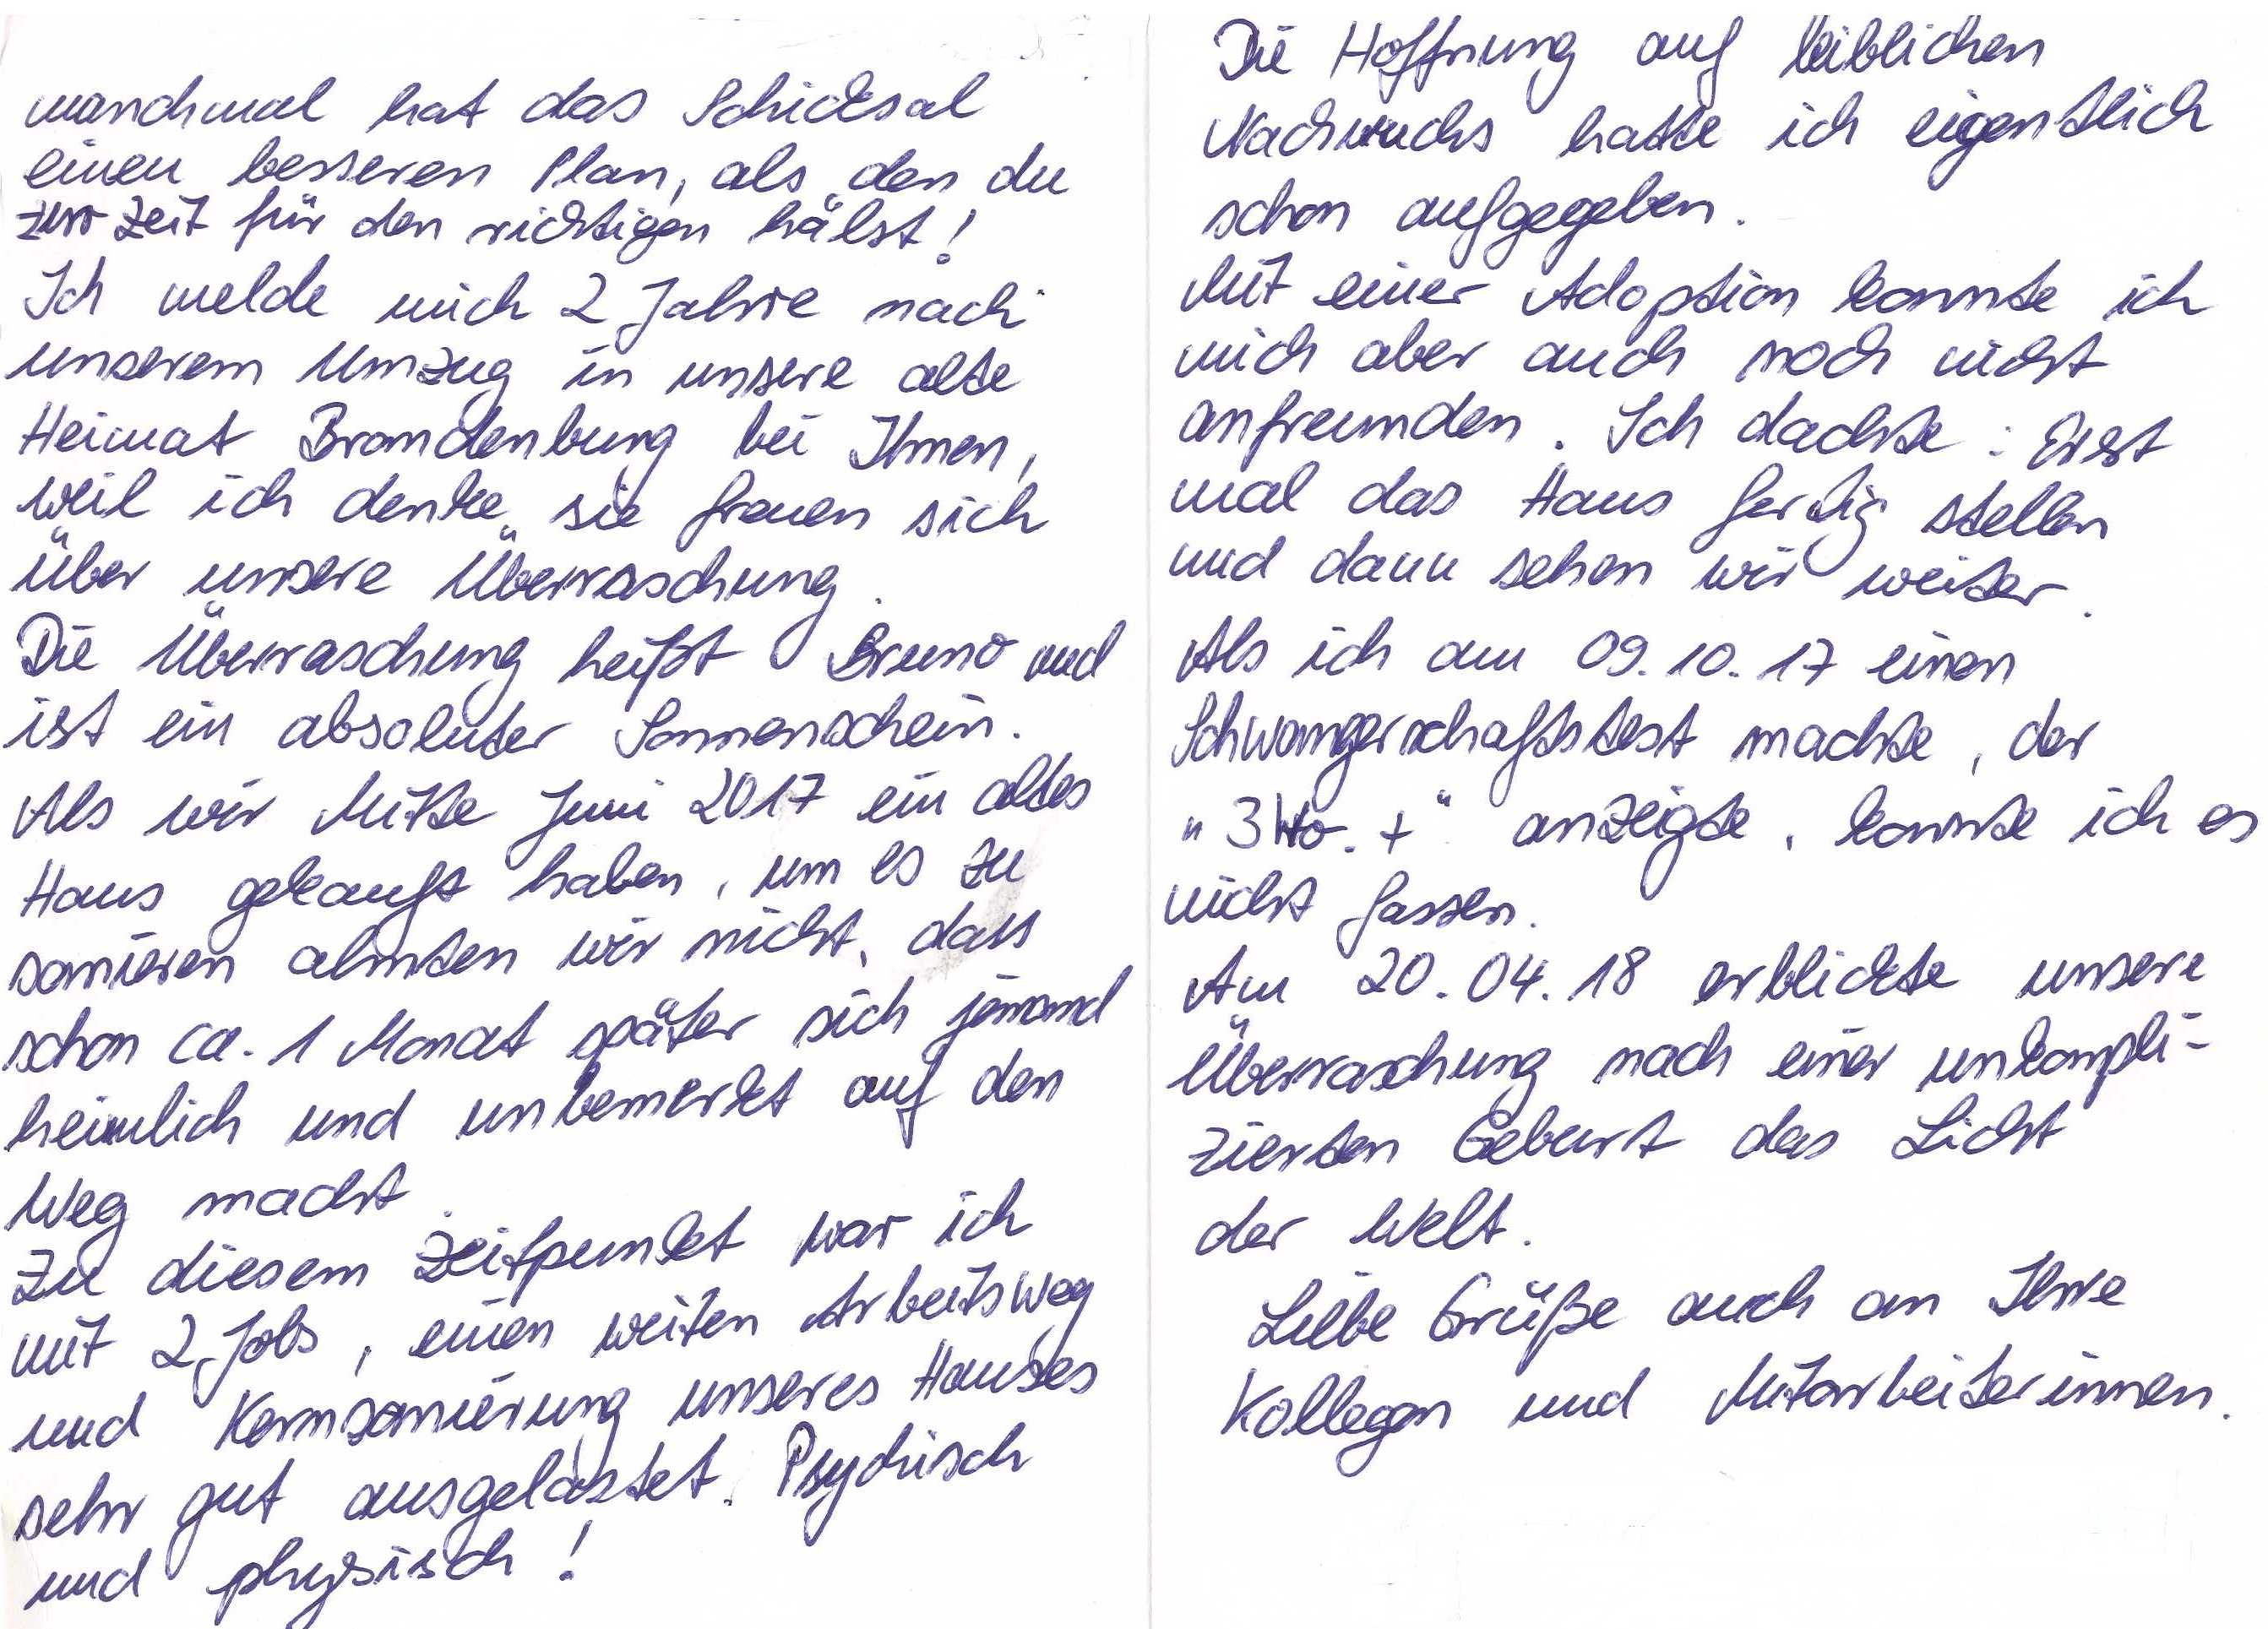 manchmal hat das Schicksal
einen besseren Plan, als den du
zur Zeit für den richtigen hälst!
Ich melde mich 2 Jahre nach
unserem Umzug in unsere alte
Heimat Brandenburg bei Ihnen,
weil ich denke, sie freuen sich
über unsere Überraschung.
Die Überraschung heißt Bruno und
ist ein absoluter Sonnenschein.
Als wir Mitte Juni 2017 ein altes
Haus gekauft haben, um es zu
sanieren ahnten wir nicht, dass
schon ca. 1 Monat später sich jemand
heimlich und unbemerkt auf den
Weg macht.
Zu diesem Zeitpunkt war ich
mit 2 Jobs, einen weiten Arbeitsweg
und Kernsanierung unseres Hauses
sehr gut ausgelastet. Psychisch
und physisch!
Die Hoffnung auf leiblichen
Nachwuchs hatte ich eigentlich
schon aufgegeben.
Mit einer Adoption konnte ich
mich aber auch noch nicht
anfreunden. Ich dachte: Erst
mal das Haus fertig stellen
und dann sehen wir weiter.
Als ich am 09.10.17 einen
Schwangerschaftstest machte, der
"3 Wo. +" anzeigte, konnte ich es
nicht fassen.
Am 20.04.18 erblickte unsere
Überraschung nach einer unkompli-
zierten Geburt das Licht
der Welt.
Liebe Grüße auch an Ihre
Kollegen und Mitarbeiterinnen.